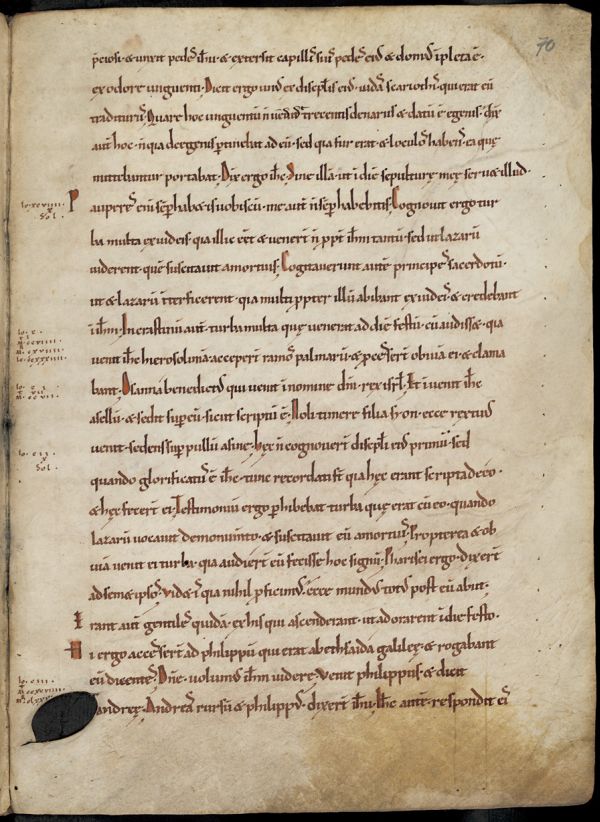 70
p̄ciosi · & unxit pedeſ ih̄u · & extersit capilliſ suiſ pedeſ eius & domus īpleta ē ·
ex odore unguenti · Dicit ergo unus ex discipl̄is eius · iudaſ scariothiſ · qui erat eū
traditurus · Quare hoc unguentū n̄ uendit̄ trecentis denariis & datū ē egenis · dix̄
aut̄ hoc · n̄ qia de egenis ꝑtinebat ad eū · sed qia fur erat & loculoſ habenſ · ea quę
mittebuntur portabat · Dix̄ ergo ih̄c · Sine illā · ut ī diē sepulturę meę seru& illud ·
Pauperes enī semꝑ hab&is uobiscū · me aut̄ n̄ semꝑ habebitis · Cognouit ergo tur
ba multa ex iudeis · qia illic eēt & uenerūt n̄ ppt̄ ih̄m tantū · sed ut lazarū
uiderent · quē suscitauit a mortuis · Cogitauerunt autē principeſ sacerdotū ·
ut & lazarū īterficerent · qia multi ppter illū abibant ex iudeiſ & credebant
ī ih̄m · In crastinū aut̄ turba multa quę uenerat ad diē festū · cū audiss& · qia
uenit ih̄c hierosolimā · acceper̄ ramoſ palmarū & pcesser̄ obuiā ei · & clama
bant · Osanna benedictus qui uenit ī nomine dn̄i · rex isrl̄ · Et īuenit ih̄c
asellū · & sedit sup eū · sicut scriptū ē · Noli timere filia syon · ecce rex tuus
uenit · sedens sup pullū asinę · Hęc n̄ cognouer̄ discipl̄i eius primū · sed
quando glorificatuſ ē ih̄c · tunc recordati st̄ qia hęc erant scripta de eo ·
& hęc fecer̄ ei · Testimoniū ergo ꝑhibebat turba quę erat cū eo · quando
lazarū uocauit de monumto · & suscitauit eū a mortuiſ · Propterea & ob
uiā uenit ei turba · qia audier̄ eū fecisse hoc signū · Pharisei ergo · dixer̄
ad sem& ipsoſ · uid&iſ qia nihil p̄ficimus · ecce mundus totus post eū abiit ·
Erant aut̄ gentileſ quidā · ex his qui ascenderant · ut adorarent ī die festo ·
Hi ergo accesser̄ ad philippū qui erat a bethsaida galileę · & rogabant
eū dicenteſ · Dn̄e · uolumus ih̄m uidere · Venit philippus · & dicit
andreę · Andreaſ rursū & philippus · dixer̄ ih̄u · Ih̄c autē · respondit eiſ